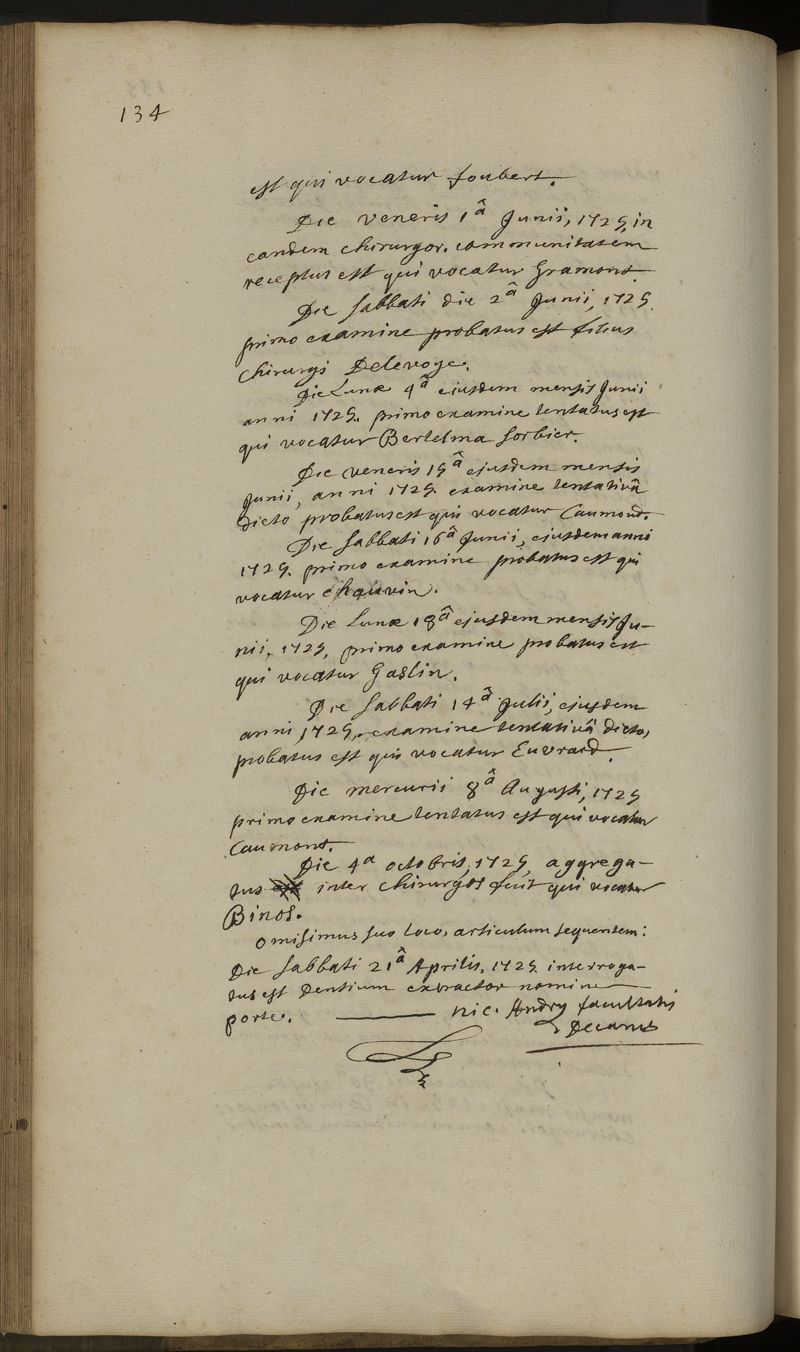 134
est qui vocatur foubert.
Die veneris 1â Junii, 1725, in
eandem chirurgor. communitatem
receptus est qui vocatur Gramont.
Die sabbati die 2â Junii, 1725.
primo examine probatus est filius
chirurgi Delevoye.
Die Lunæ 4â ejusdem mensis Junii
anni 1725. primo examine tentatus est
qui vocatur Bertelma sorbier.
Die veneris 15â ejusdem mensis
Junii, anni 1725. examine tentativâ
dicto probatus est qui vocatur Caumond.
Die sabbati 16â Junii, ejusdem anni
1725. primo examine probatus est qui
vocatur chauvin.
Die Lunæ 18â ejusdem mensis Ju-
nii, 1725, primo examine probatus est
qui vocatur Gaslin.
Die sabbati 14â Julii, ejusdem
anni 1725, examine tentativâ dicto,
probatus est qui vocatur Euvrard.
Die mercurii 8â Augusti, 1725
primo examine tentatus est qui vocatur
Caumont.
Die 4a octobris, 1725, aggrega-
tus inter chirurgos fuit qui vocatur
Binos.
omisimus suo loco, articulum sequentem:
Die sabbati 21â Aprilis, 1725. interroga-
tus est Dentium extractor nomine
porte. nic. Andry facultatis
Decanus